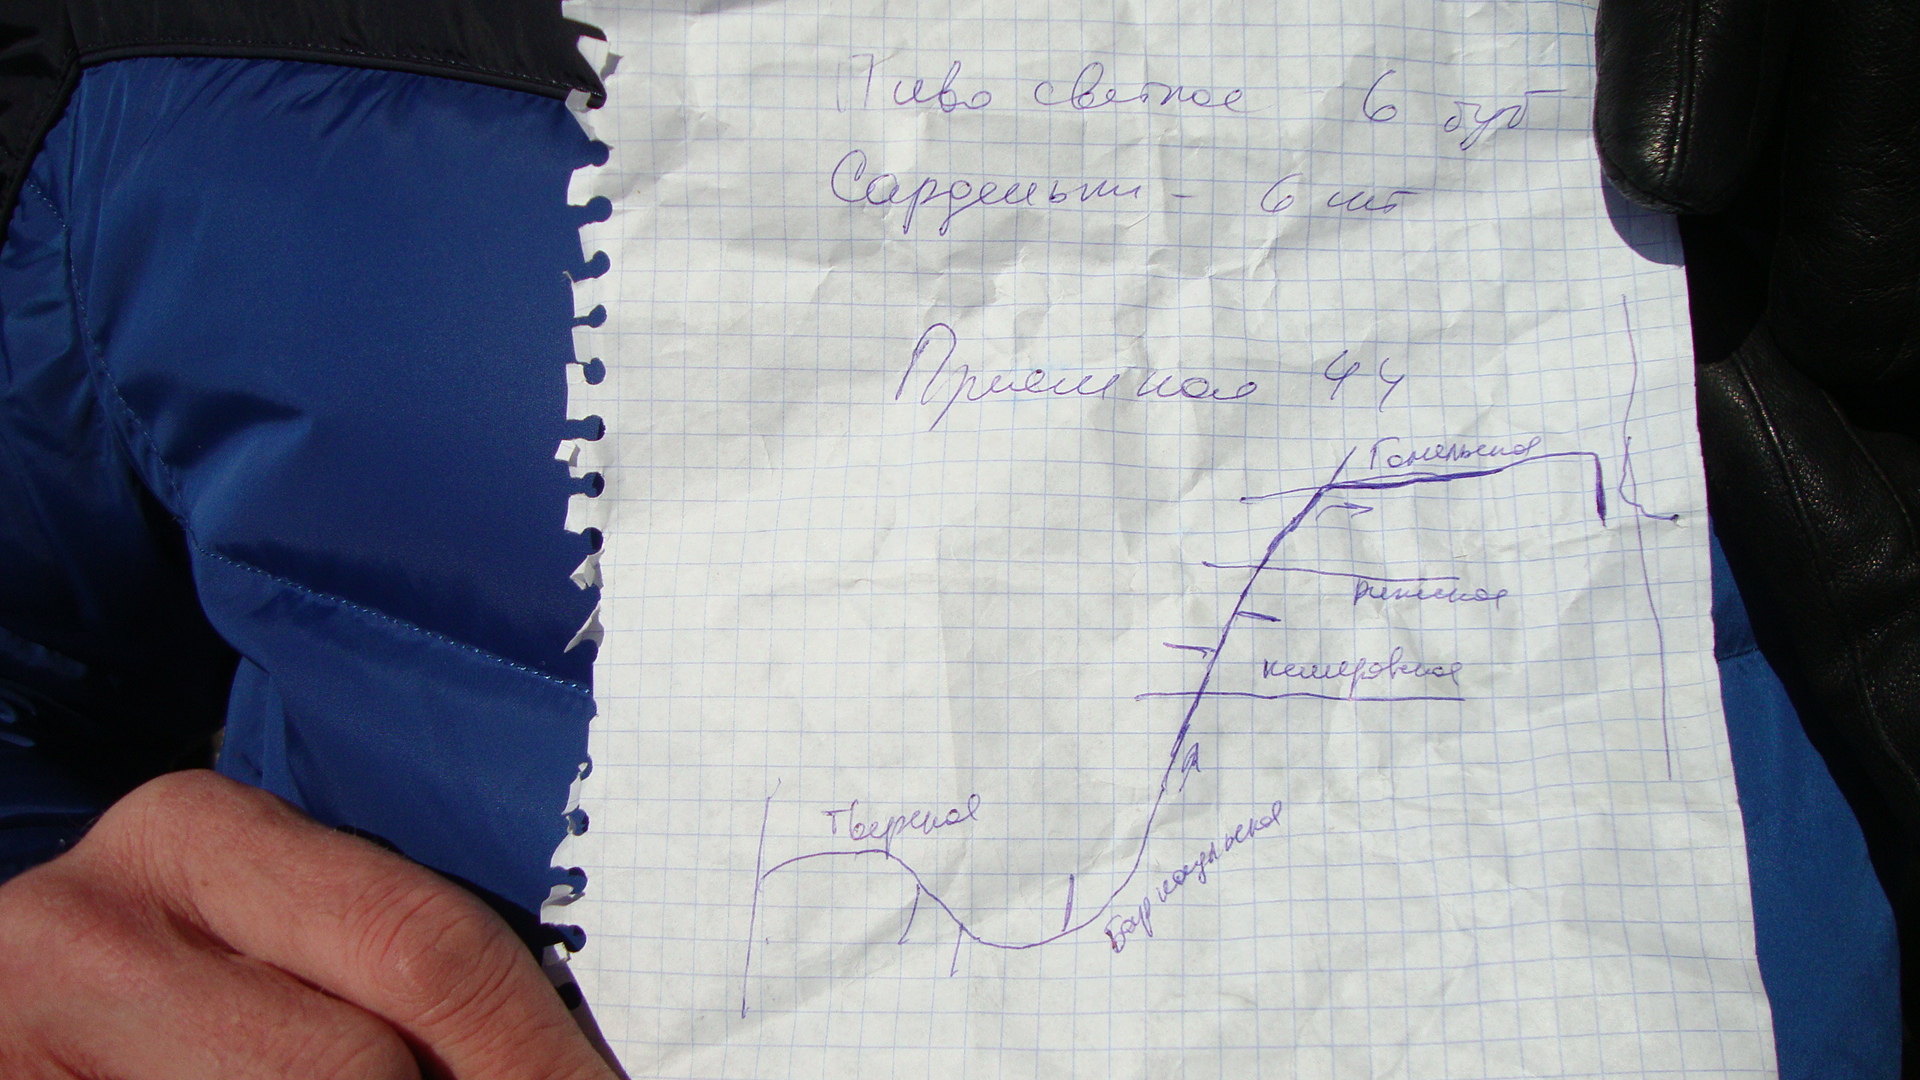 Пиво светлое 6 бут
Сардельки - 6 шт
Приемная 44
Гомельская
рижская
кемеровская
тверская
Барнаульская